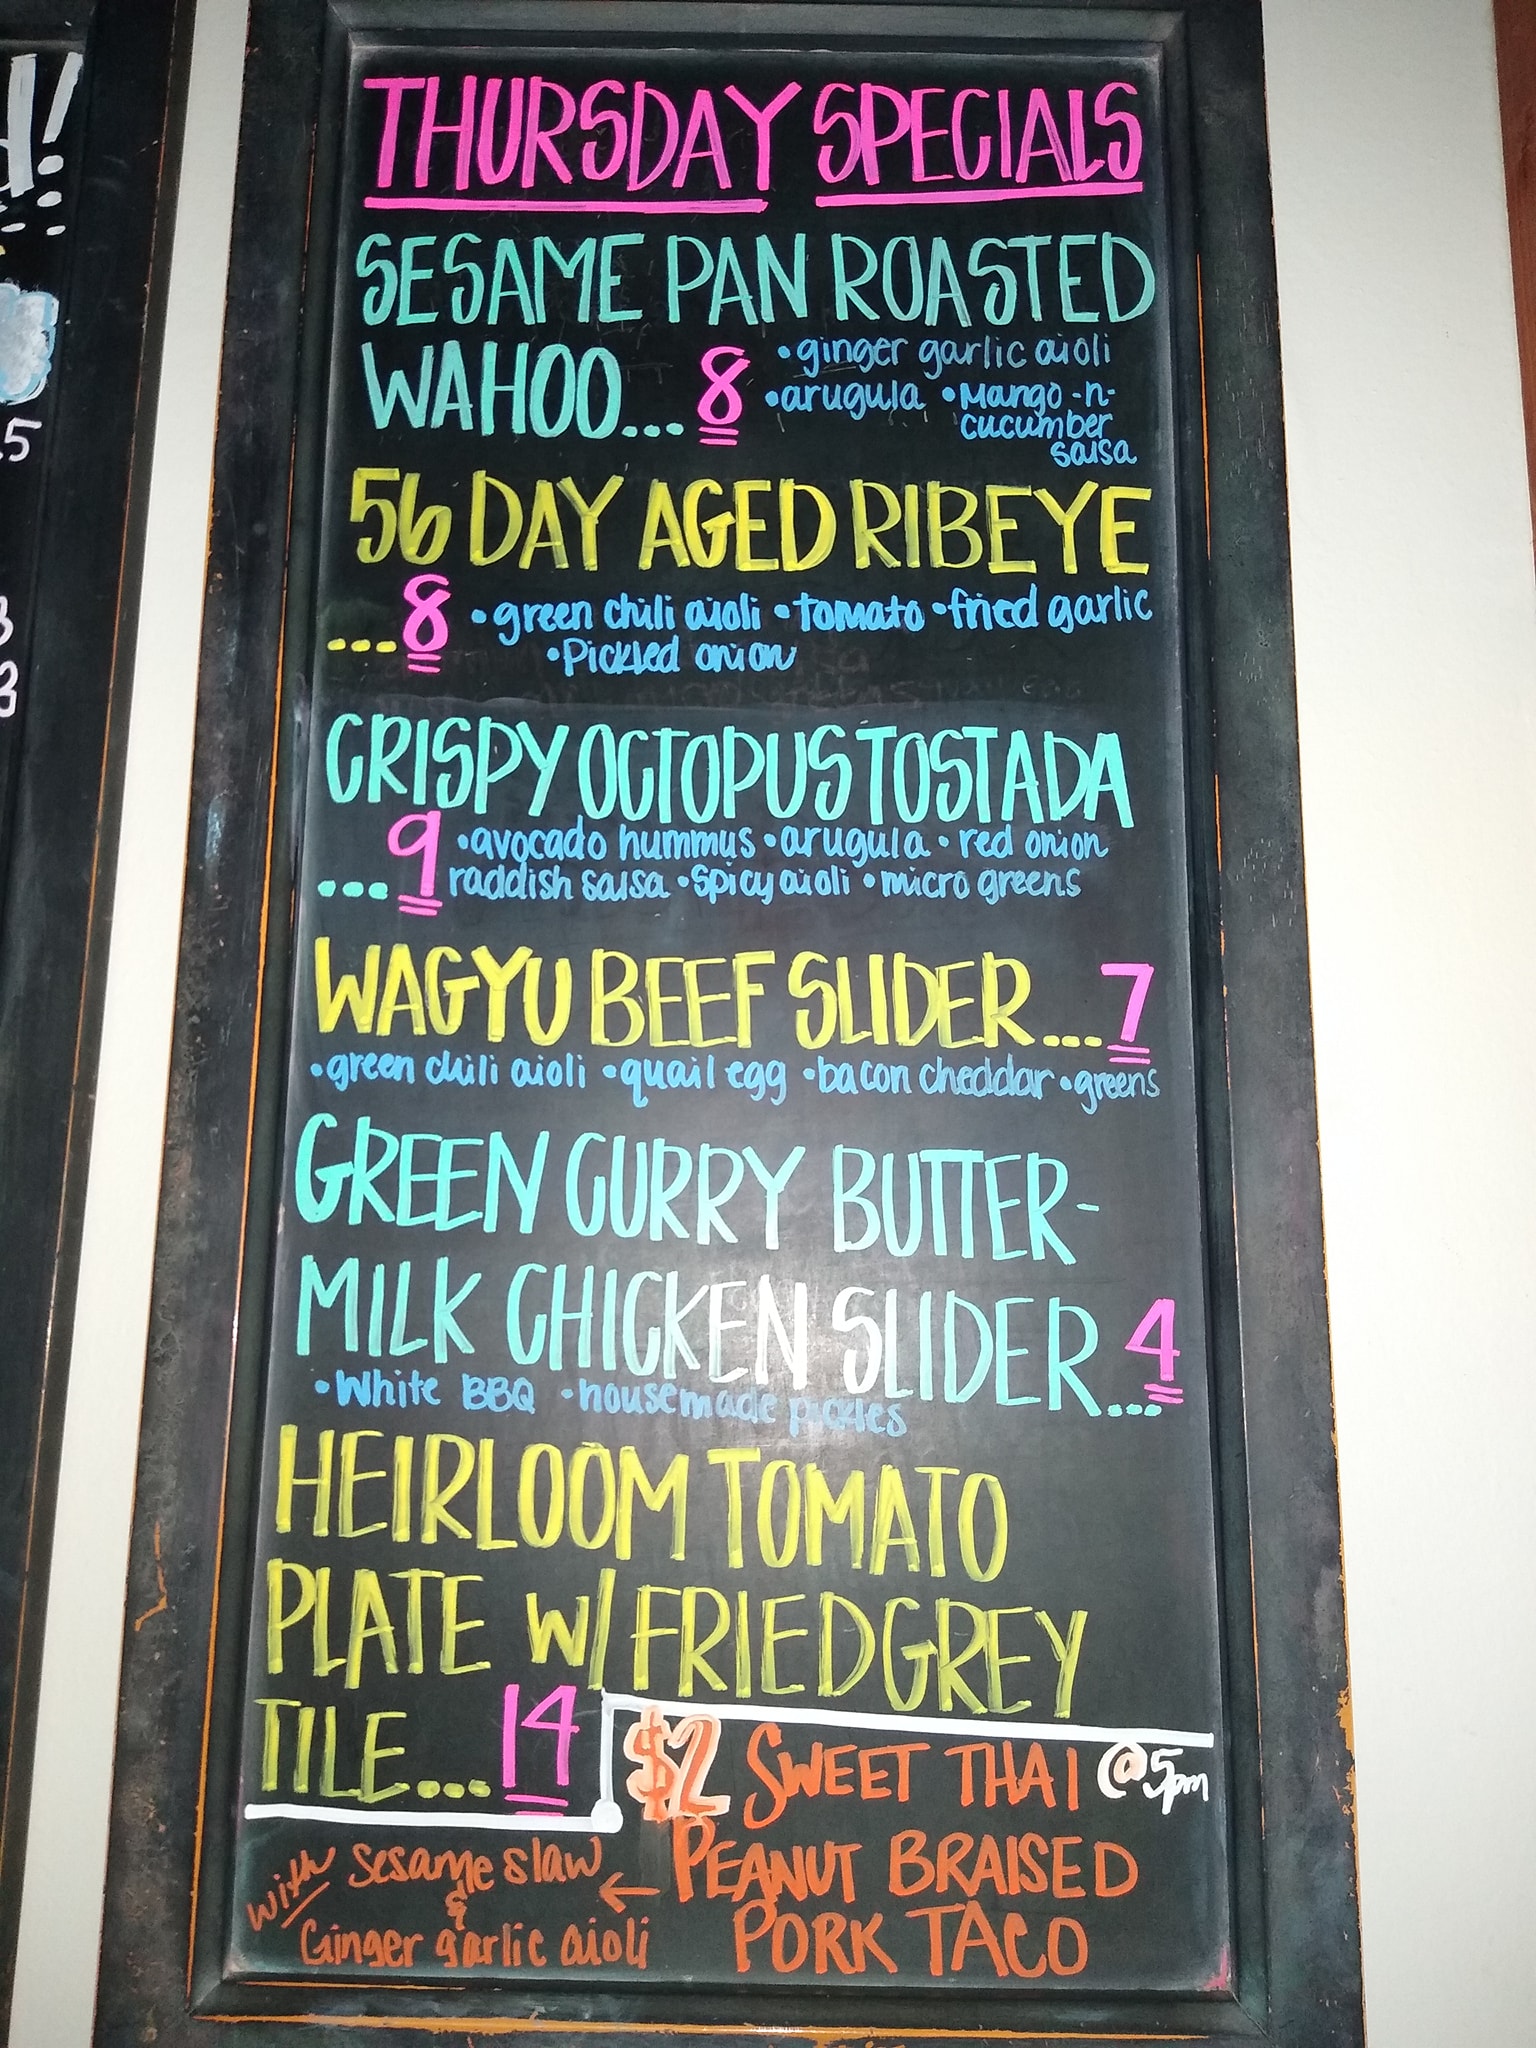 THURSDAY SPECIALS
SESAME PAN ROASTED
WAHOO... 8
• ginger garlic aioli
• arugula • Mango -n-
cucumber
salsa
56 DAY AGED RIBEYE
... 8 • green chili aioli • tomato • fried garlic
• Pickled onion
CRISPY OCTOPUS TOSTADA
... 9 • avocado hummus • arugula • red onion
raddish salsa • Spicy aioli • micro greens
WAGYU BEEF SLIDER... 7
• green chili aioli • quail egg • bacon cheddar • greens
GREEN CURRY BUTTER-
MILK CHICKEN SLIDER... 4
• White BBQ • housemade pickles
HEIRLOOM TOMATO
PLATE W/ FRIED GREY
TILE... 14
$2 SWEET THAI @5pm
PEANUT BRAISED
PORK TACO
with sesame slaw
&
Ginger garlic aioli
d!
.5
3